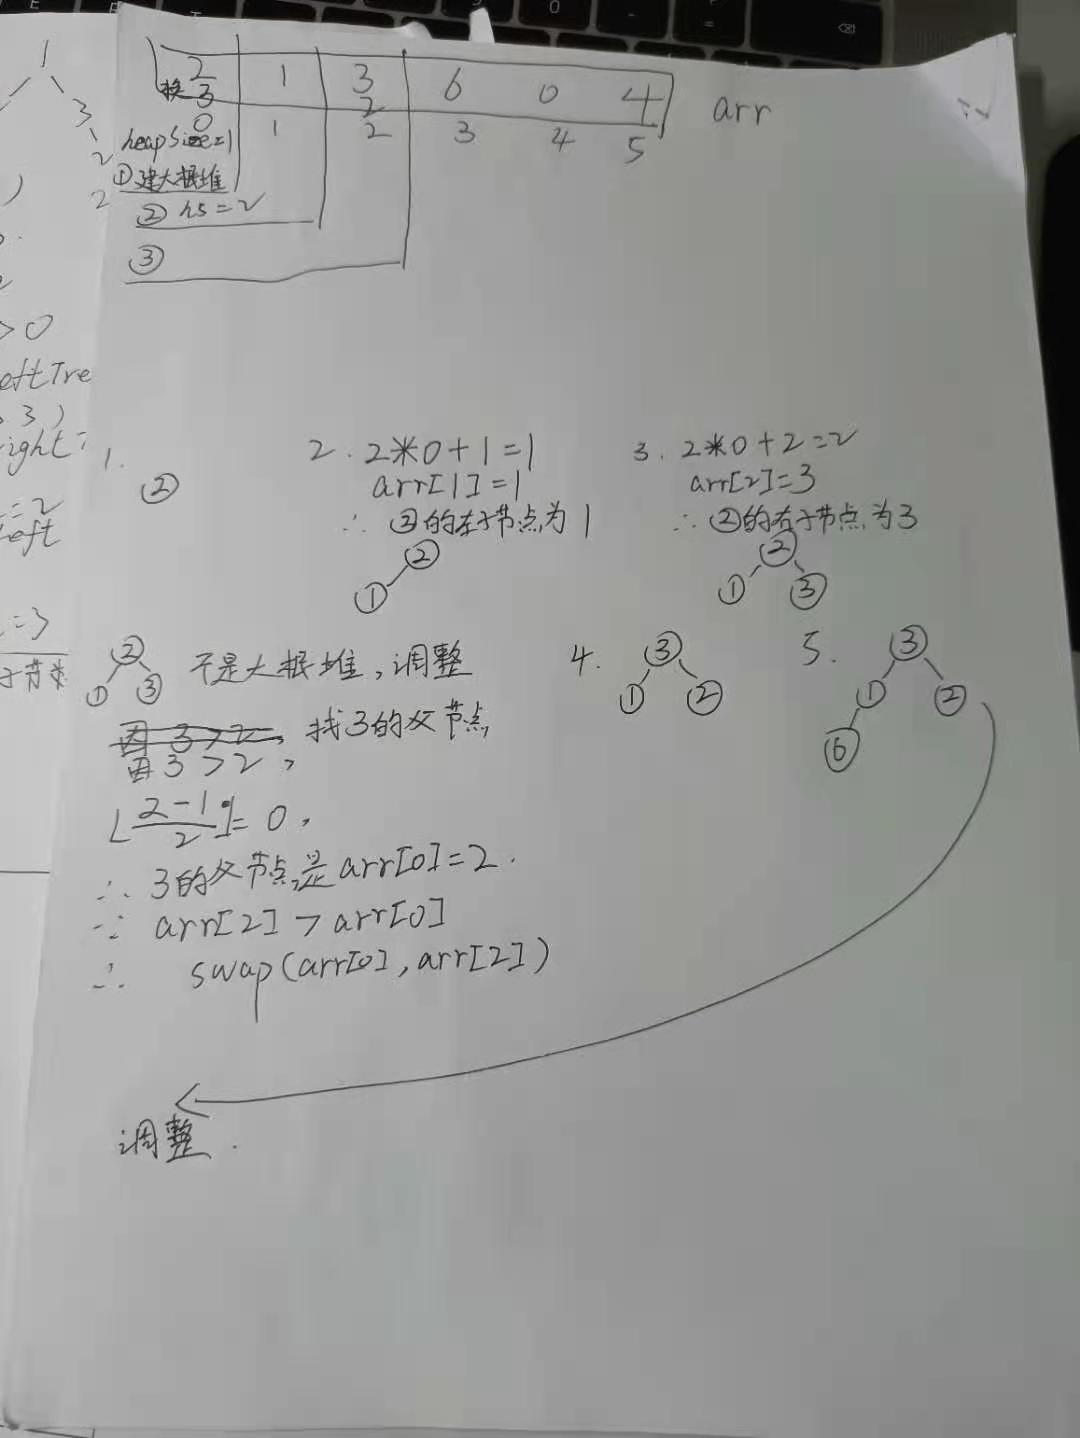 2 1 3 6 0 4 arr
换 3 2
0 1 2 3 4 5
heapSize=1
①建大根堆
② hs=2
③
1.
②
2. 2*0+1=1
arr[1]=1
∴ ②的左子节点为1
②
①
3. 2*0+2=2
arr[2]=3
∴ ②的右子节点为3
②
① ③
②
① ③
不是大根堆,调整
因 3>2, 找3的父节点
因3>2,
⌊(2-1)/2⌋=0,
∴ 3的父节点是arr[0]=2.
∵ arr[2]>arr[0]
∴ swap(arr[0],arr[2])
4.
③
① ②
5.
③
① ②
⑥
调整.
1
3
2
2
>0
eftTre
3)
ight
=2
eft
=3
子节点